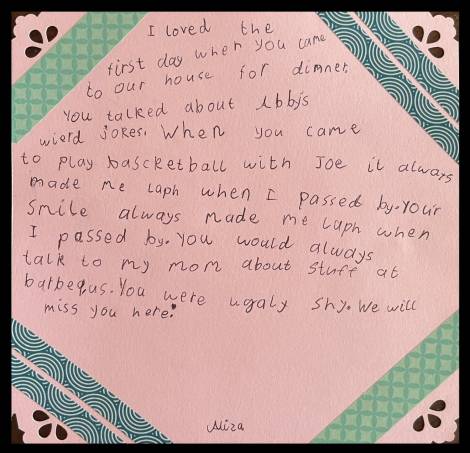 I loved the
first day when you came
to our house for dinner.
You talked about Abby's
wierd jokes. When you came
to play bascketball with Joe it always
made me laph when I passed by. Your
smile always made me laph when
I passed by. You would always
talk to my mom about stuff at
barbequs. You were ugaly shy. We will
miss you here!
Aliza